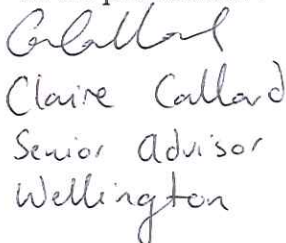 Claire Callard
Senior Advisor
Wellington